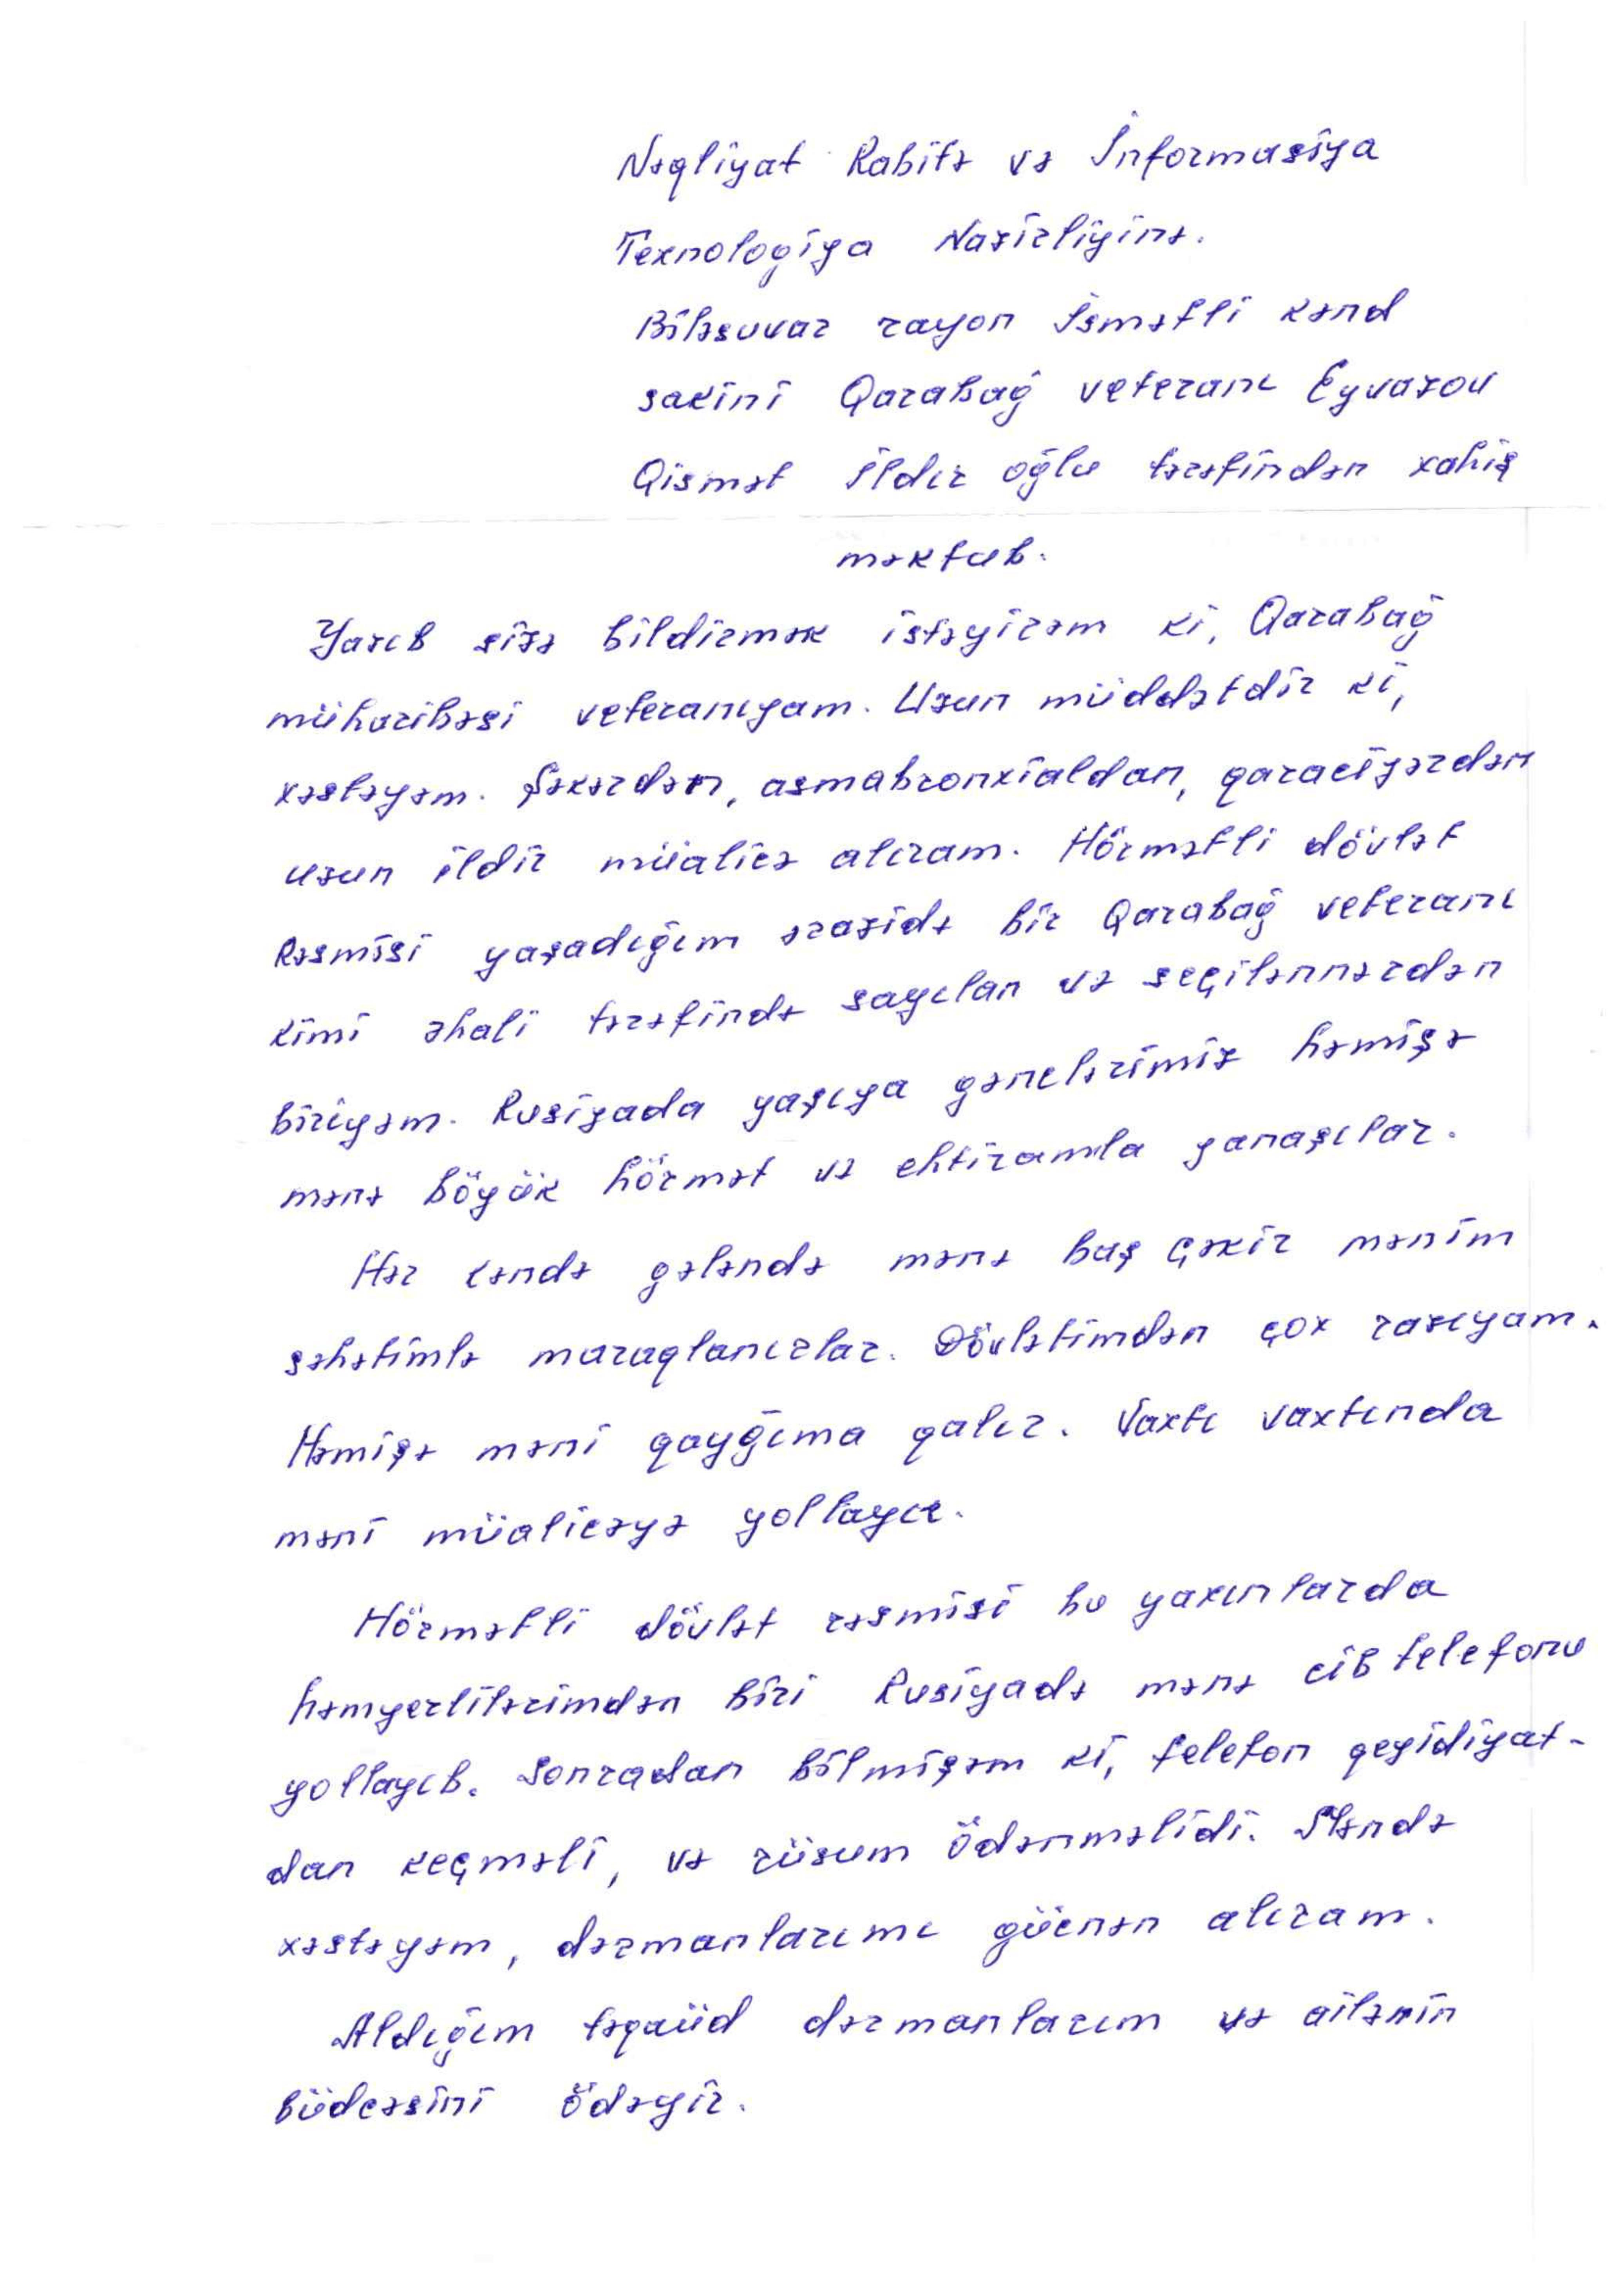 Nəqliyat Rabitə və İnformasiya
Texnologiya Nazirliyinə.
Biləsuvar rayon İsmətli kənd
sakini Qarabağ veteranı Eyvazov
Qismət İldır oğlu tərəfindən xahiş
məktub.
Yazıb sizə bildirmək istəyirəm ki, Qarabağ
müharibəsi veteranıyam. Uzun müddətdir ki,
xəstəyəm. Şəkərdən, asmabronxialdan, qaraciyərdən
uzun ildir müalicə alıram. Hörmətli dövlət
Rəsmisi yaşadığım ərazidə bir Qarabağ veteranı
kimi əhali tərəfində sayılan və seçilənnərdən
biriyəm. Rusiyada yaşıya gənclərimiz həmişə
mənə böyük hörmət və ehtiramla yanaşılar.
Hər kəndə gələndə mənə baş çəkir mənim
səhətimlə maraqlanırlar. Dövlətimdən çox razıyam.
Həmişə məni qayğıma qalır. Vaxtı vaxtında
məni müalicəyə yollayır.
Hörmətli dövlət rəsmisi bu yaxınlarda
həmyerlilərimdən biri Rusiyadə mənə cib telefonu
yollayıb. Sonradan bilmişəm ki, telefon qeyidiyat-
dan keçməli, və rüsum ödənməlidi. Məndə
xəstəyəm, dərmanlarımı gücnən alıram.
Aldığım təqaüd dərmanlarım və ailənin
büdcəsini ödəyir.